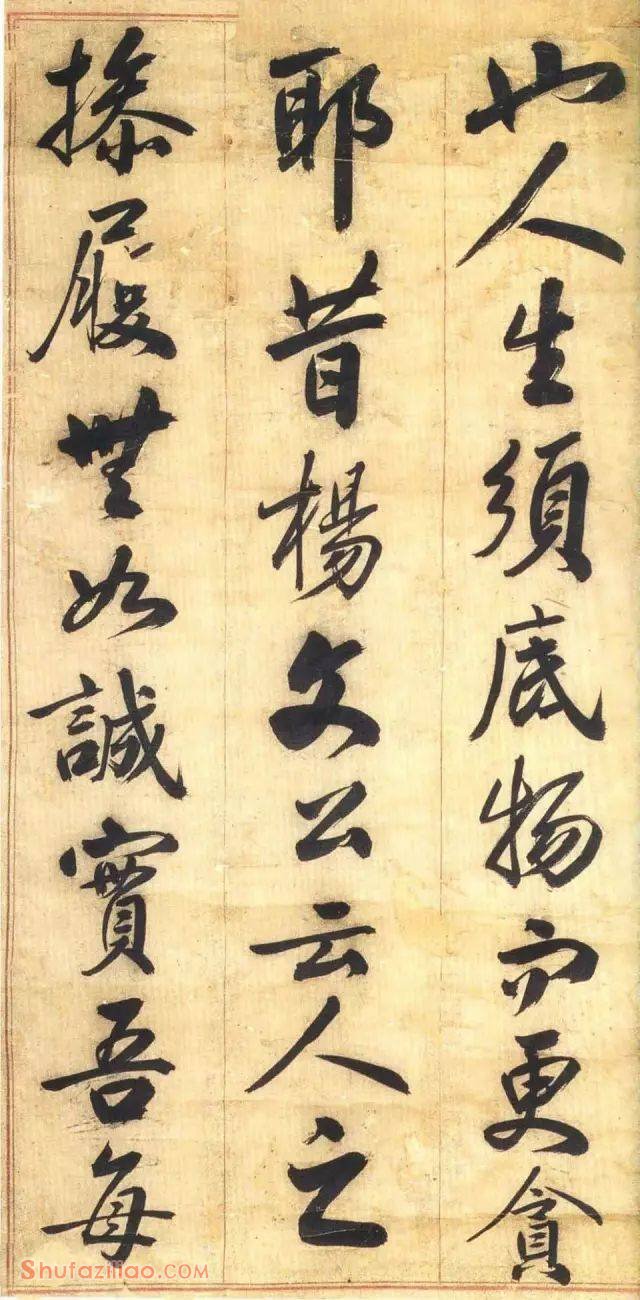 也人生須底物而更貪
耶昔楊文公云人之
操履無如誠實吾每
Shufaziliao.COM